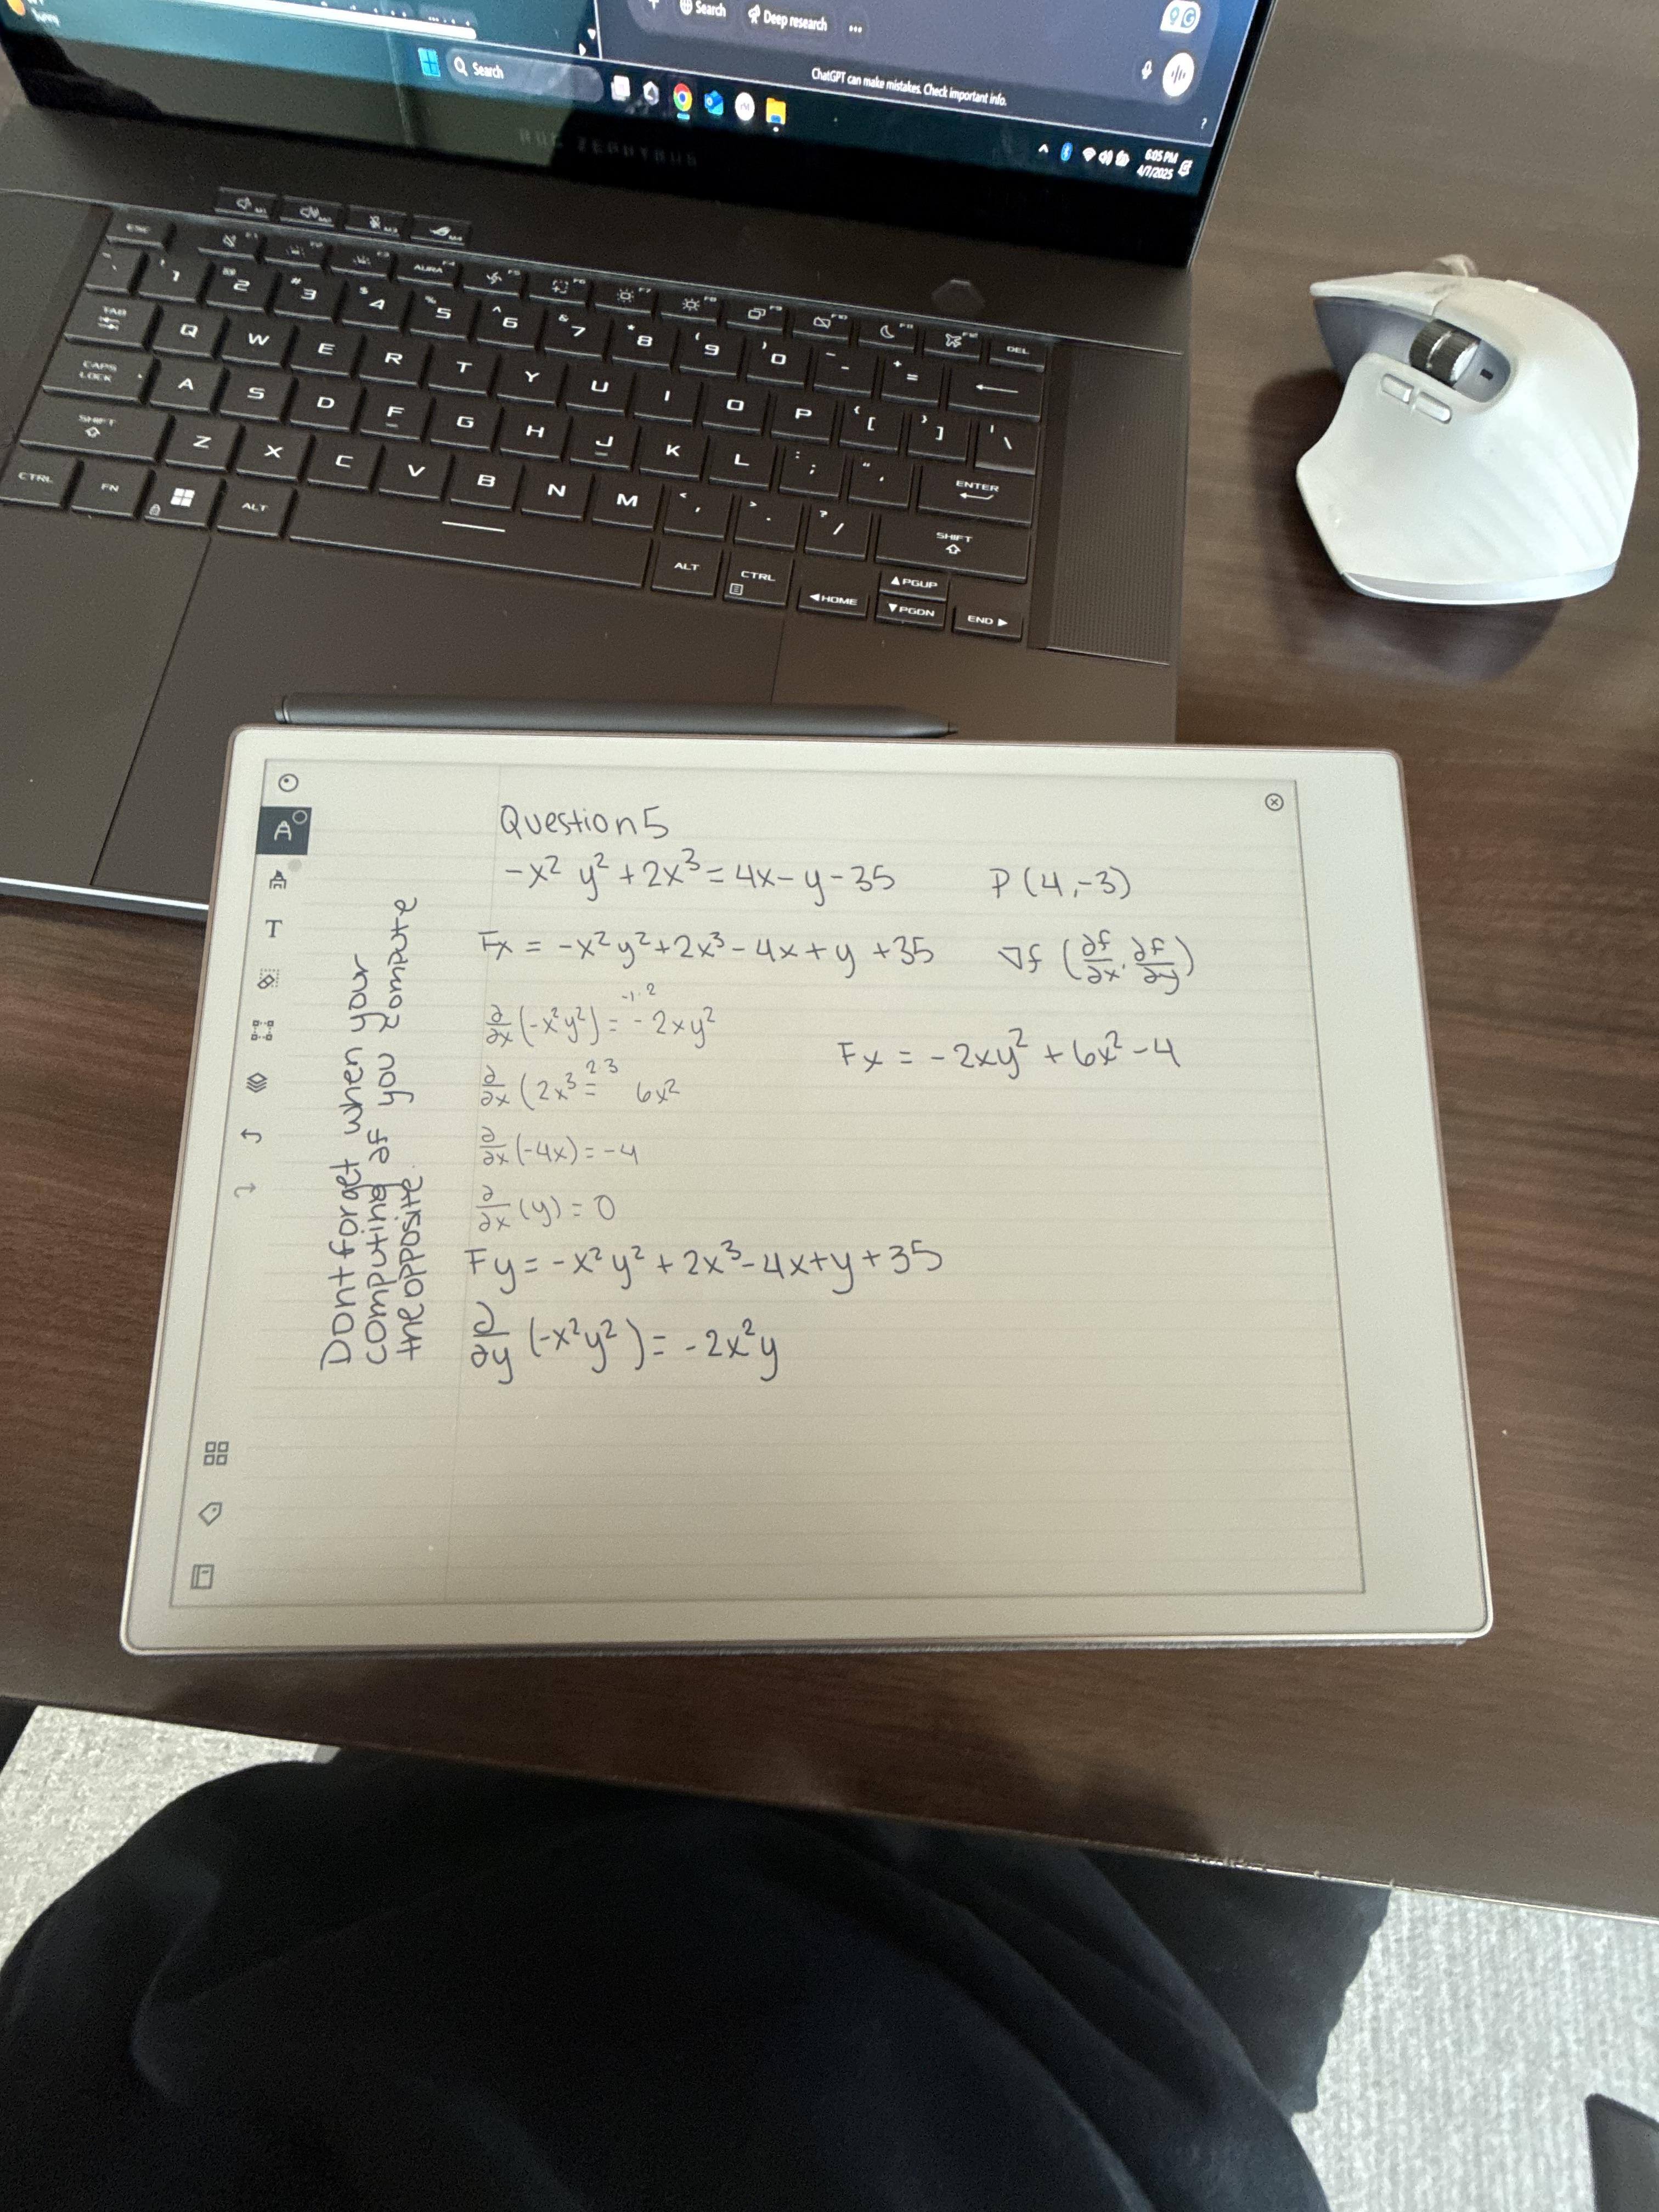 Search
Deep research
ChatGPT can make mistakes. Check important info.
Search
?
6:05 PM
4/7/2025
ROG ZEPHYRUS
M1 M2 M3 M4
ESC F1 F2 F3 AURA F4 F5 F6 F7 F8 F9 F10 F11 F12 DEL
~ ` ! 1 @ 2 # 3 $ 4 % 5 ^ 6 & 7 * 8 ( 9 ) 0 _ - + =
TAB Q W E R T Y U I O P { [ } ] | \
CAPS LOCK A S D F G H J K L : ; " ' ENTER
SHIFT Z X C V B N M < , > . ? / SHIFT
CTRL FN ALT ALT CTRL HOME PGUP PGDN END
T
Question 5
-x² y² + 2x³ = 4x - y - 35 P (4, -3)
Fx = -x² y² + 2x³ - 4x + y + 35 ∇f (∂f/∂x, ∂f/∂y)
-1·2
∂/∂x (-x²y²) = -2xy²
Fx = -2xy² + 6x² - 4
2·3
∂/∂x (2x³ = 6x²
∂/∂x (-4x) = -4
∂/∂x (y) = 0
Fy = -x² y² + 2x³ - 4x + y + 35
∂/∂y (-x²y²) = -2x²y
Dont forget when your
computing ∂f you compute
the opposite.